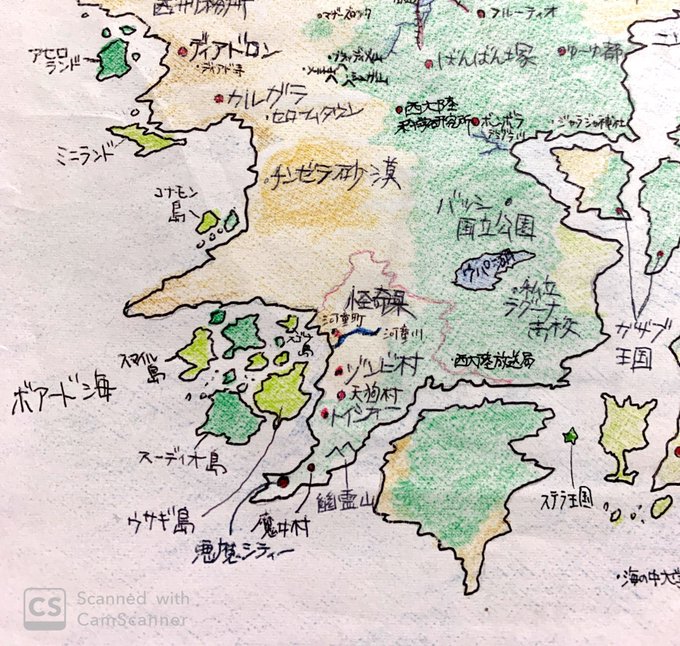 フルーティオ
マザーズロック
アセロ
ランド
ディアドロン
・ディアド寺
ばんばん塚
ゆーゆ都
カルガラ
・セロームタウン
西大陸
ボンボラ
ミニランド
・チンゼラ砂漠
コナモン
島
バッシー
国立公園
ウパ湖
・私立
ラグーナ
高校
ガザブ
王国
怪奇県
河童町
河童川
スゴウ
島
スマイル
島
ゾンビ村
西大陸放送局
天狗村
トイシティー
ボアード海
スーディオ島
ステラ王国
幽霊山
ウサギ島
魔女村
悪魔シティー
・海の中大学
CS Scanned with
CamScanner